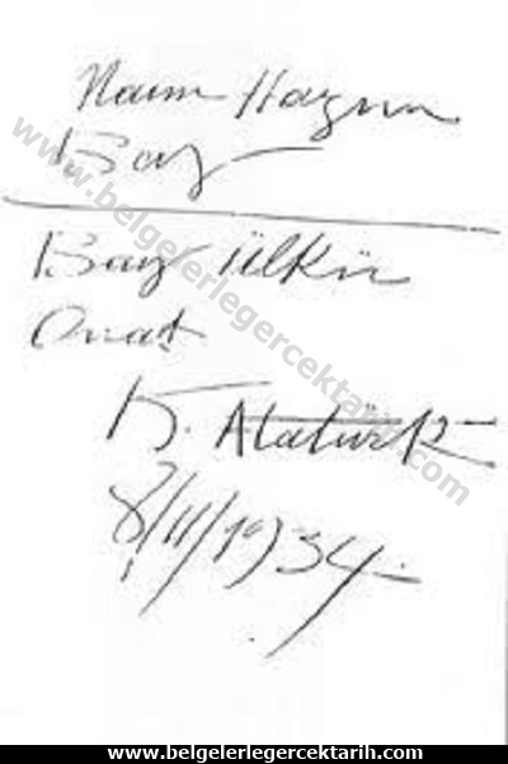 Naim Hazım
Bay
Bay Ülkü
Onat
K. Atatürk
8/11/1934
www.belgelerlegercektarih.com
www.belgelerlegercektarih.com